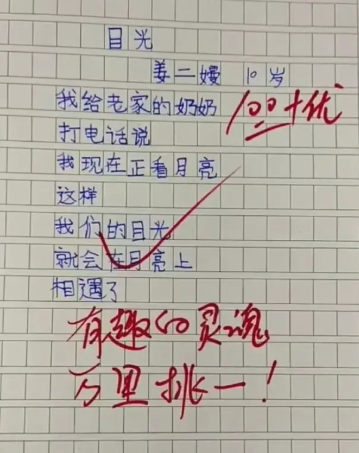 目光
姜二嫚 10岁
我给老家的奶奶
打电话说
我现在正看月亮
这样
我们的目光
就会在月亮上
相遇了
100+优
有趣的灵魂
万里挑一！